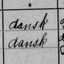 dansk
dansk